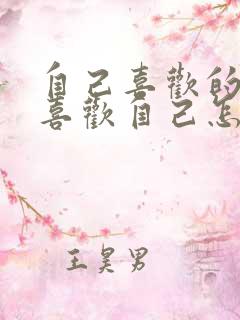 自己喜歡的
喜歡自己怎
王昊男